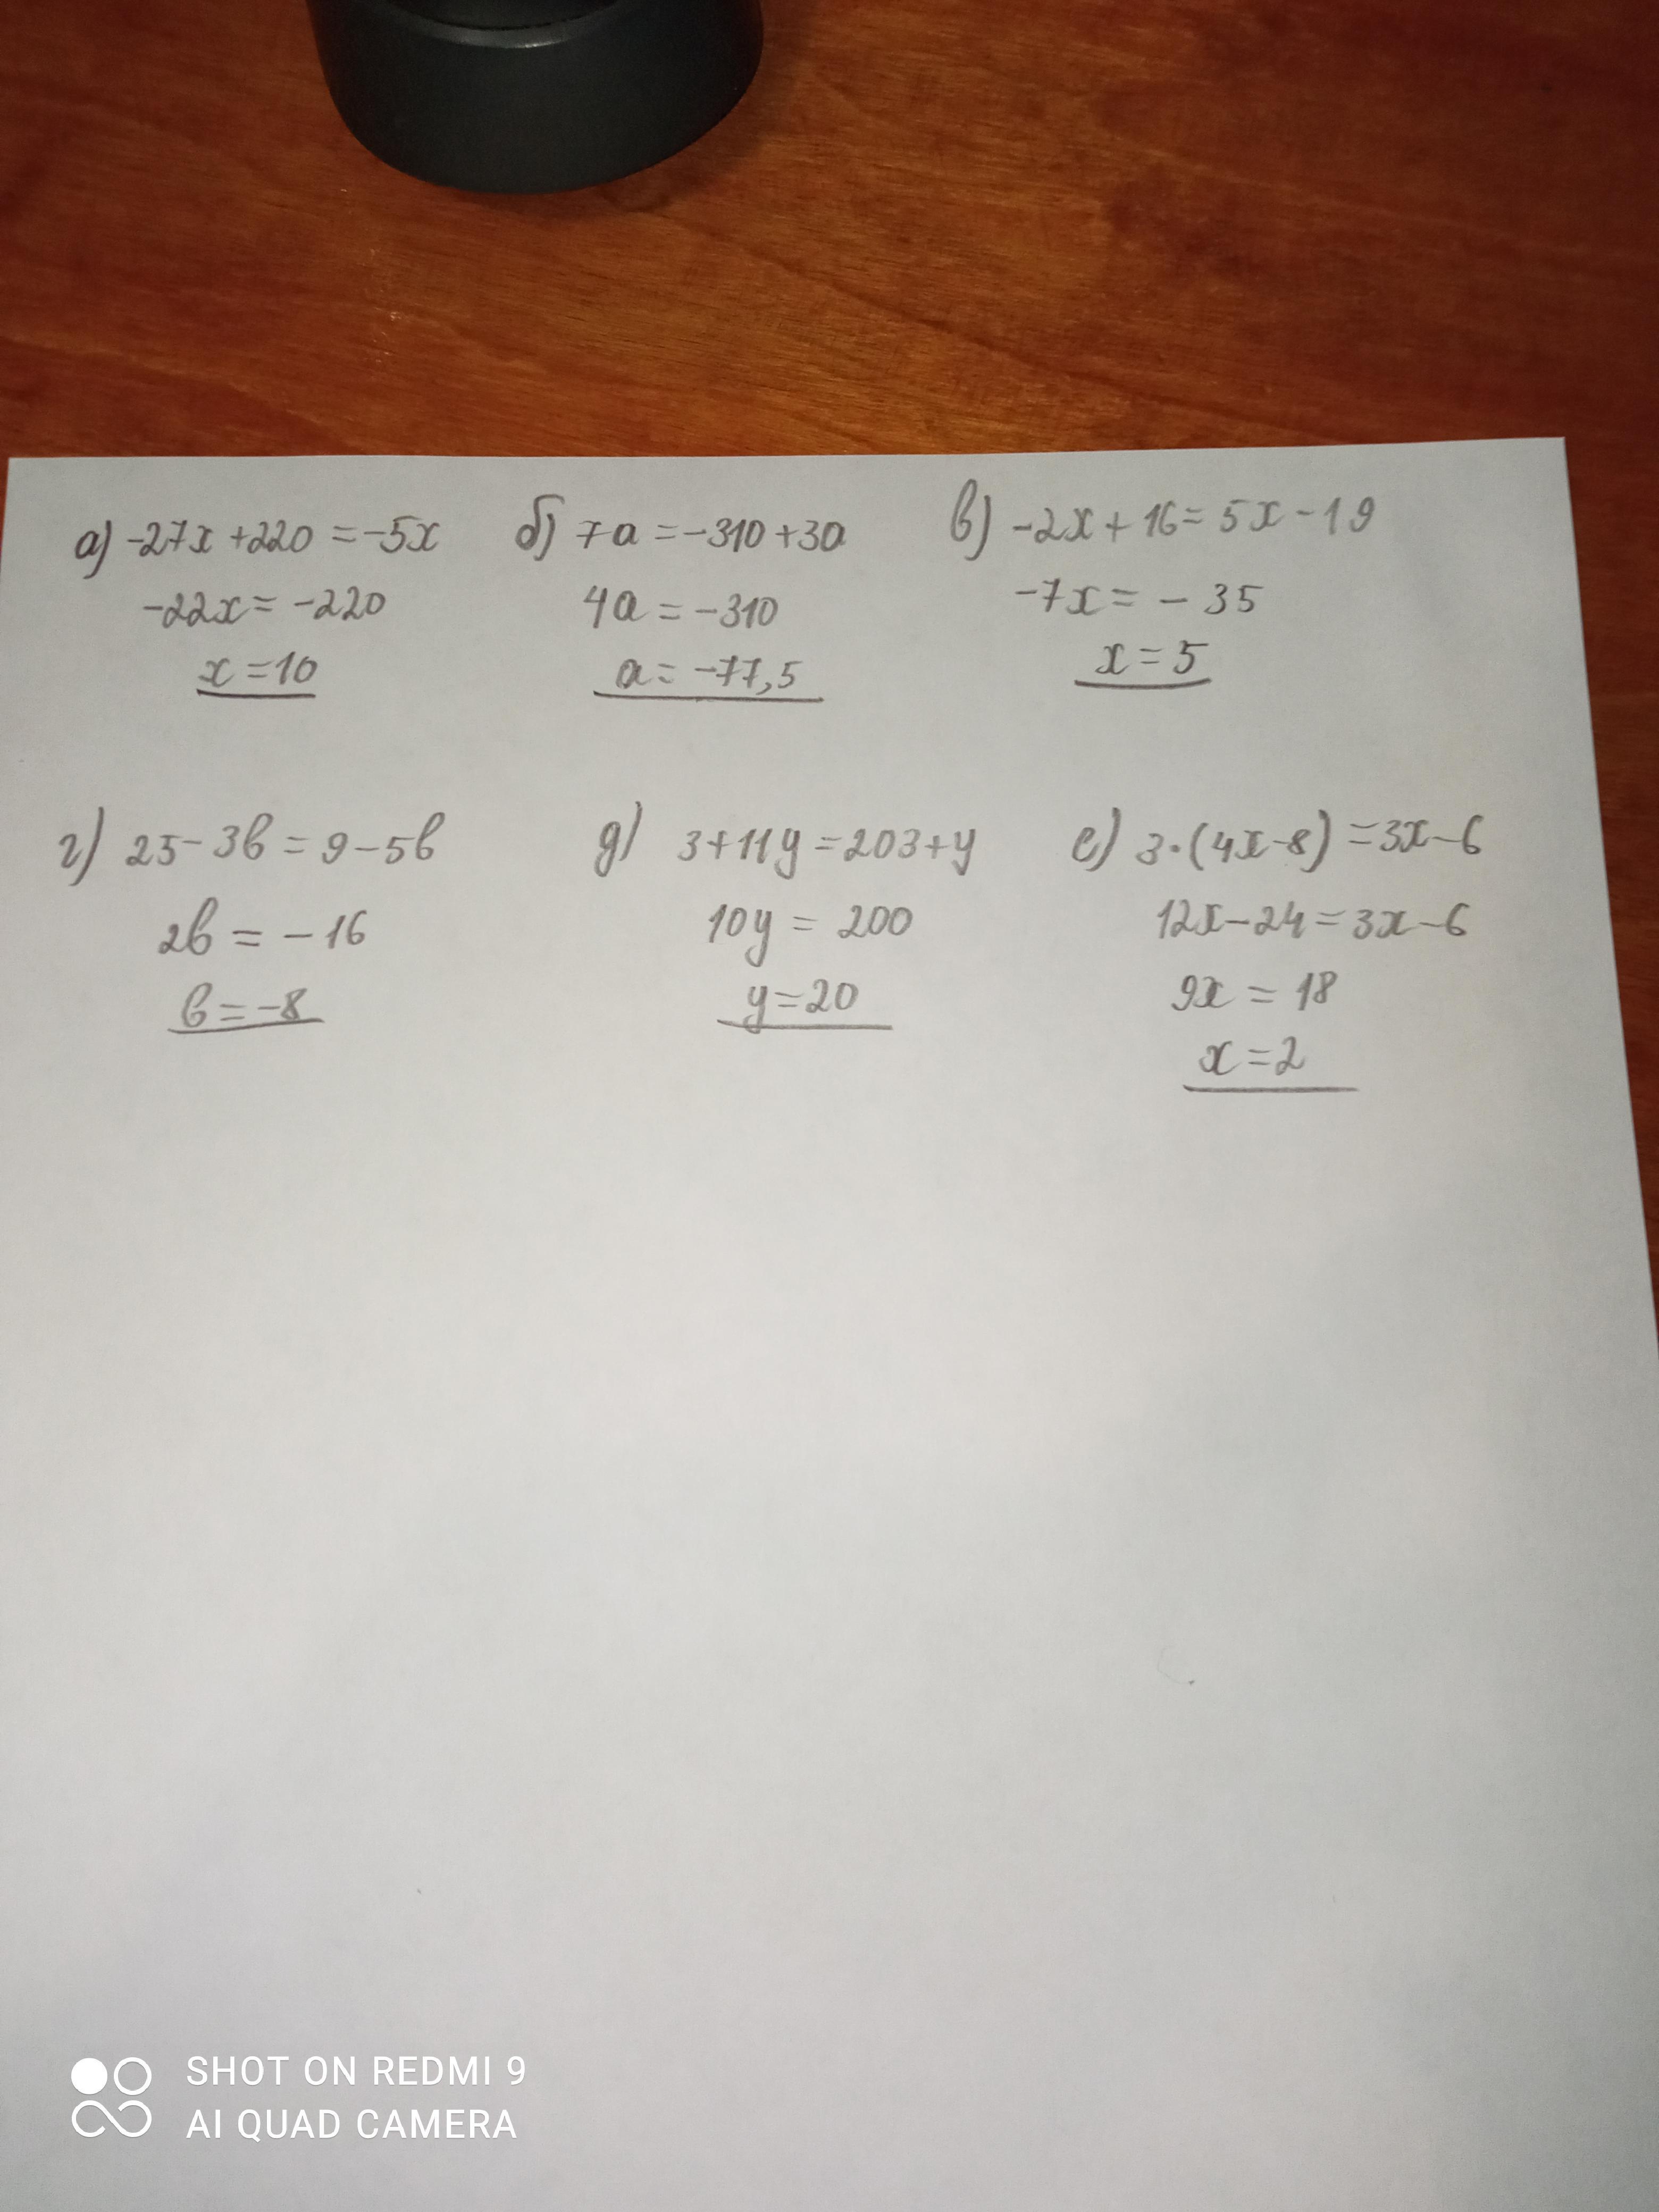 а) -27x +220 = -5x
-22x = -220
x = 10
б) 7a = -310 + 3a
4a = -310
a = -77,5
в) -2x + 16 = 5x - 19
-7x = - 35
x = 5
г) 25 - 3b = 9 - 5b
2b = - 16
b = -8
д) 3 + 11y = 203 + y
10y = 200
y = 20
е) 3·(4x-8) = 3x - 6
12x - 24 = 3x - 6
9x = 18
x = 2
SHOT ON REDMI 9
AI QUAD CAMERA